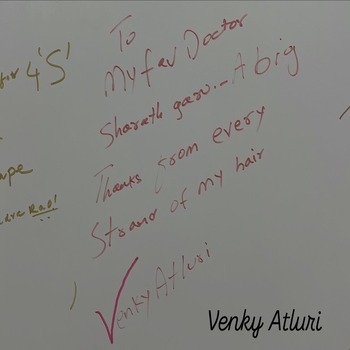 To
My fav Doctor
Sharath garu... A big
Thanks from every
Strand of my hair
Venky Atluri
for 4'S'
ape
Rao!
Venky Atluri